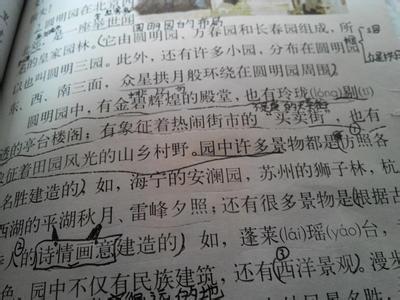 圆明园在北
是一座举世闻
圆明园的布局
的皇家园林。它由圆明园、万春园和长春园组成，所
以也叫圆明三园。此外，还有许多小园，分布在圆明园
东、西、南三面，众星拱月般环绕在圆明园周围
圆明园中，有金碧辉煌的殿堂，也有玲珑(lóng)剔(tī)
透的亭台楼阁；有象征着热闹街市的“买卖街”，也有
象征着田园风光的山乡村野。园中许多景物都是仿照各
名胜建造的，如，海宁的安澜园，苏州的狮子林，杭
西湖的平湖秋月、雷峰夕照；还有很多景物是根据古
人的诗情画意建造的，如，蓬莱(lái)瑶(yáo)台，
色，园中不仅有民族建筑，还有西洋景观。漫步